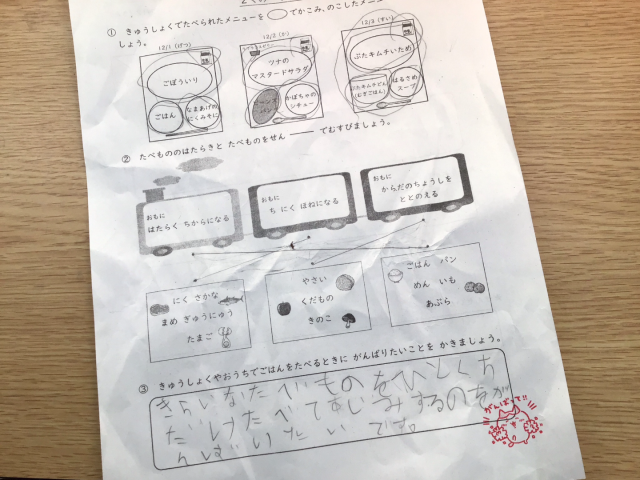 ① きゅうしょくでたべられたメニューを でかこみ、のこしたメニュー
しょう。
12/1 (げつ)
ごぼういり
ごはん
なまあげの
にくみそに
12/2 (か)
ツナの
マスタードサラダ
パン
かぼちゃの
シチュー
12/3 (すい)
ぶたキムチいため
ぶたキムチどん
(むぎごはん)
はるさめ
スープ
② たべもののはたらきと たべものをせん ─── でむすびましょう。
おもに
はたらく ちからになる
おもに
ち にく ほねになる
おもに
からだのちょうしを
ととのえる
にく さかな
まめ ぎゅうにゅう
たまご
やさい
くだもの
きのこ
ごはん パン
めん いも
あぶら
③ きゅうしょくやおうちでごはんをたべるときに がんばりたいことを かきましょう。
きらいなたべいものをひとくち
だいけたべて
するのをが
んばいたいです。
がんばって!!